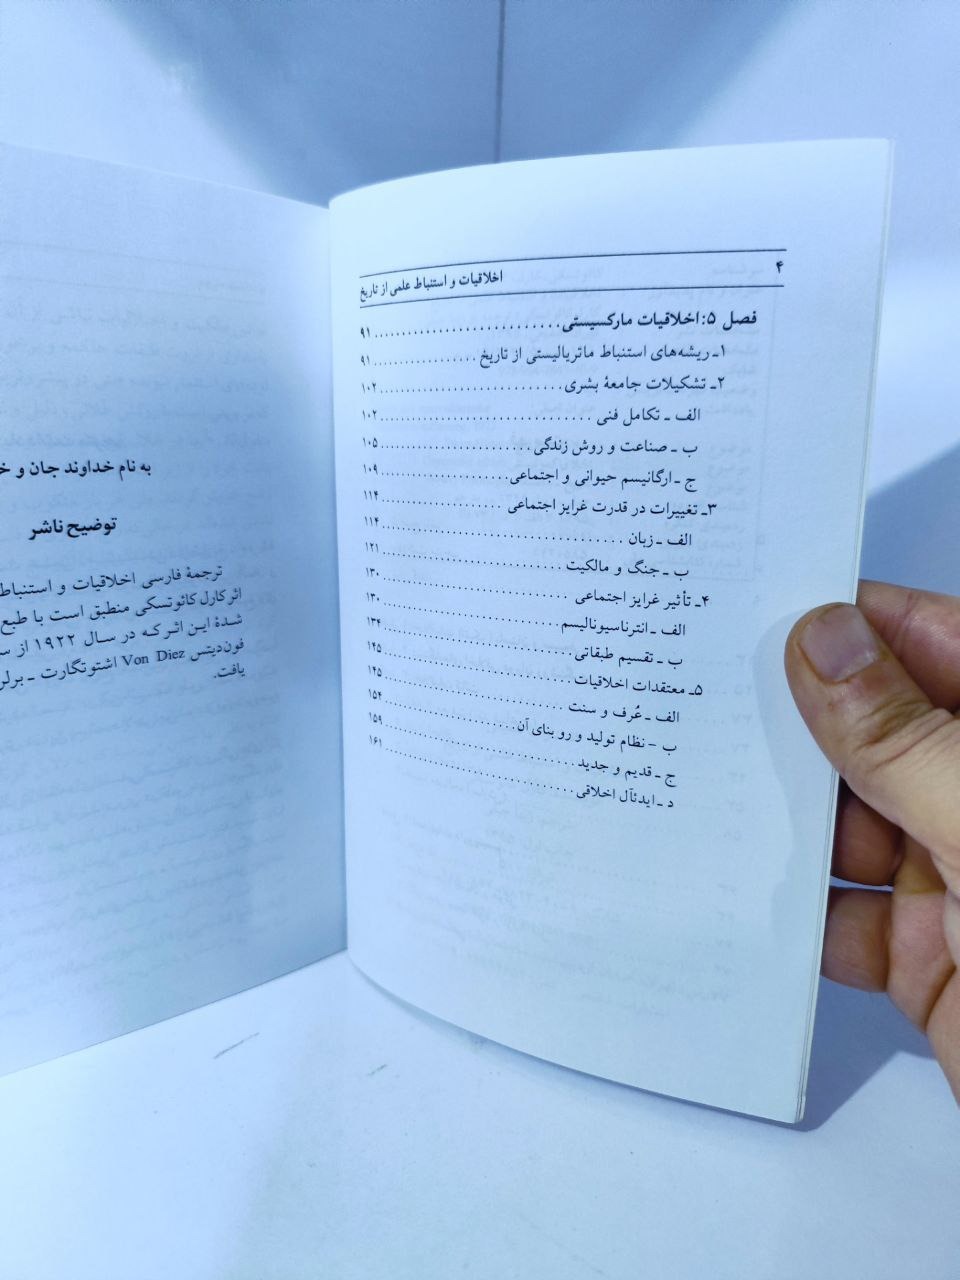 ۴ اخلاقیات و استنباط علمی از تاریخ
فصل ۵: اخلاقیات مارکسیستی ........................ ۹۱
۱ـ ریشه‌های استنباط ماتریالیستی از تاریخ ................ ۹۱
۲ـ تشکیلات جامعهٔ بشری ........................ ۱۰۲
الف ـ تکامل فنی ........................ ۱۰۲
ب ـ صناعت و روش زندگی ........................ ۱۰۵
ج ـ ارگانیسم حیوانی و اجتماعی .................... ۱۰۹
۳ـ تغییرات در قدرت غرایز اجتماعی .................... ۱۱۴
الف ـ زبان ........................ ۱۱۴
ب ـ جنگ و مالکیت ........................ ۱۲۱
۴ـ تأثیر غرایز اجتماعی ........................ ۱۳۰
الف ـ انترناسیونالیسم ........................ ۱۳۰
ب ـ تقسیم طبقاتی ........................ ۱۳۴
۵ـ معتقدات اخلاقیات ........................ ۱۴۵
الف ـ عُرف و سنت ........................ ۱۴۵
ب – نظام تولید و رو بنای آن .................... ۱۵۴
ج ـ قدیم و جدید ........................ ۱۵۹
د ـ ایدئآل اخلاقی ........................ ۱۶۱
به نام خداوند جان و
توضیح ناشر
ترجمهٔ فارسی اخلاقیات و استنباط
اثر کارل کائوتسکی منطبق است با طبع
شدهٔ این اثر که در سال ۱۹۲۲ از
فون‌دیتس Von Diez اشتوتگارت ـ
یافت.